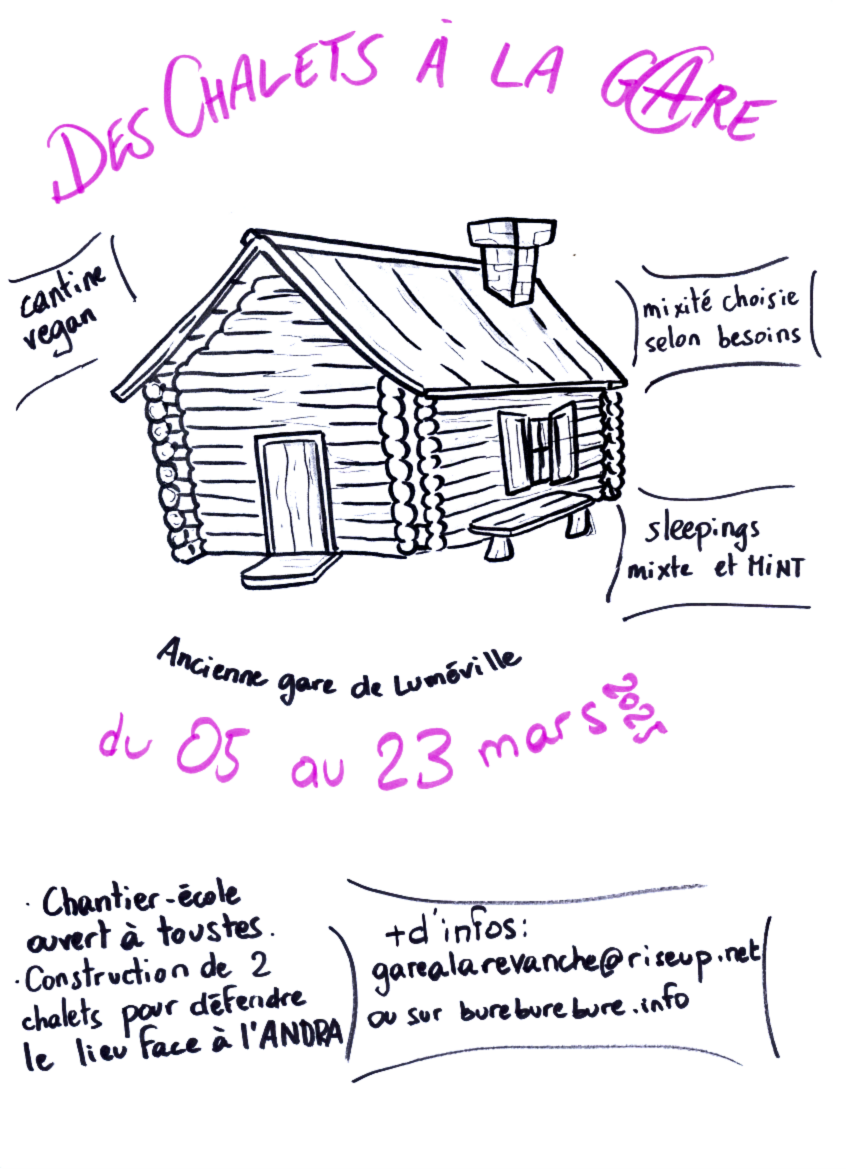 DES CHALETS À LA GARE
cantine
vegan
mixité choisie
selon besoins
sleepings
mixte et MiNT
Ancienne gare de Luméville
du 05 au 23 mars 2025
· Chantier-école
ouvert à toustes.
· Construction de 2
chalets pour défendre
le lieu face à l'ANDRA
+d'infos:
garealarevanche@riseup.net
ou sur bureburebure.info